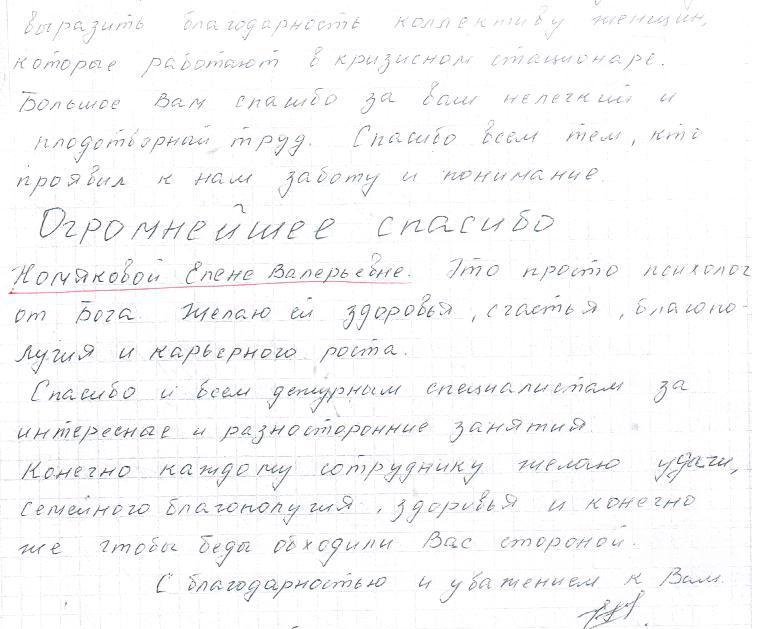 выразить благодарность коллективу женщин,
которые работают в кризисном стационаре.
Большое Вам спасибо за ваш нелегкий и
плодотворный труд. Спасибо всем тем, кто
проявил к нам заботу и понимание.
Огромнейшее спасибо
Номяковой Елене Валерьевне. Это просто психолог
от Бога. Желаю ей здоровья, счастья, благопо-
лучия и карьерного роста.
Спасибо и всем дежурным специалистам за
интересные и разносторонние занятия.
Конечно каждому сотруднику желаю удачи,
семейного благополучия, здоровья и конечно
же чтобы беды обходили Вас стороной.
С благодарностью и уважением к Вам.